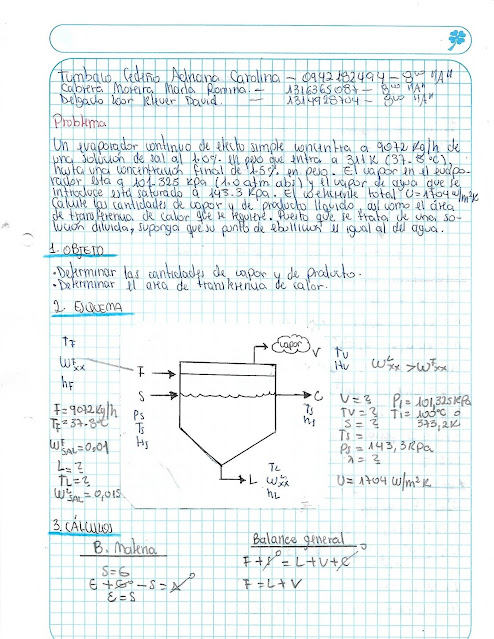 Tumbaco Cedeño Adriana Carolina – 0942182494 – 8vo "A"
Cabrera Moreira María Romina. – 1316365087 – 8vo "A"
Delgado Loor Klever David. – 1314928704 – 8vo "A"
Problema
Un evaporador continuo de efecto simple concentra a 9072 kg/h de
una solución de sal al 1.0% en peso que entra a 311 K (37.8 °C),
hasta una concentración final de 1.5% en peso. El vapor en el evapo-
rador esta a 101.325 kPa (1.0 atm abs) y el vapor de agua que se
introduce está saturado a 143.3 kPa. El coeficiente total U=1704 w/m²K
Calcule las cantidades de vapor y de producto líquido, así como el área
de transferencia de calor que se requiere. Puesto que se trata de una so-
lución diluida, suponga que su punto de ebullición es igual al del agua.
1. OBJETO
· Determinar las cantidades de vapor y de producto.
· Determinar el area de transferencia de calor.
2. ESQUEMA
tF
WFxx
hF
F = 9072 Kg/h
TF = 37.8°C
WFSAL = 0,01
L = ?
tL = ?
WLSAL = 0,015
F
S
PS
TS
HS
vapor
V
TV
HV
C
TS
hS
L
TL
WLxx
hL
WLxx > WFxx
V = ?
TV = ?
S = ?
TS =
PS = 143,3 KPa
λ = ?
U = 1704 W/m²K
P1 = 101,325 KPa
T1 = 100°C o
373,2K
3. CÁLCULOS
B. Materia
S = G
E + G° – S = A°
E = S
Balance general
F + S° = L + V + C°
F = L + V